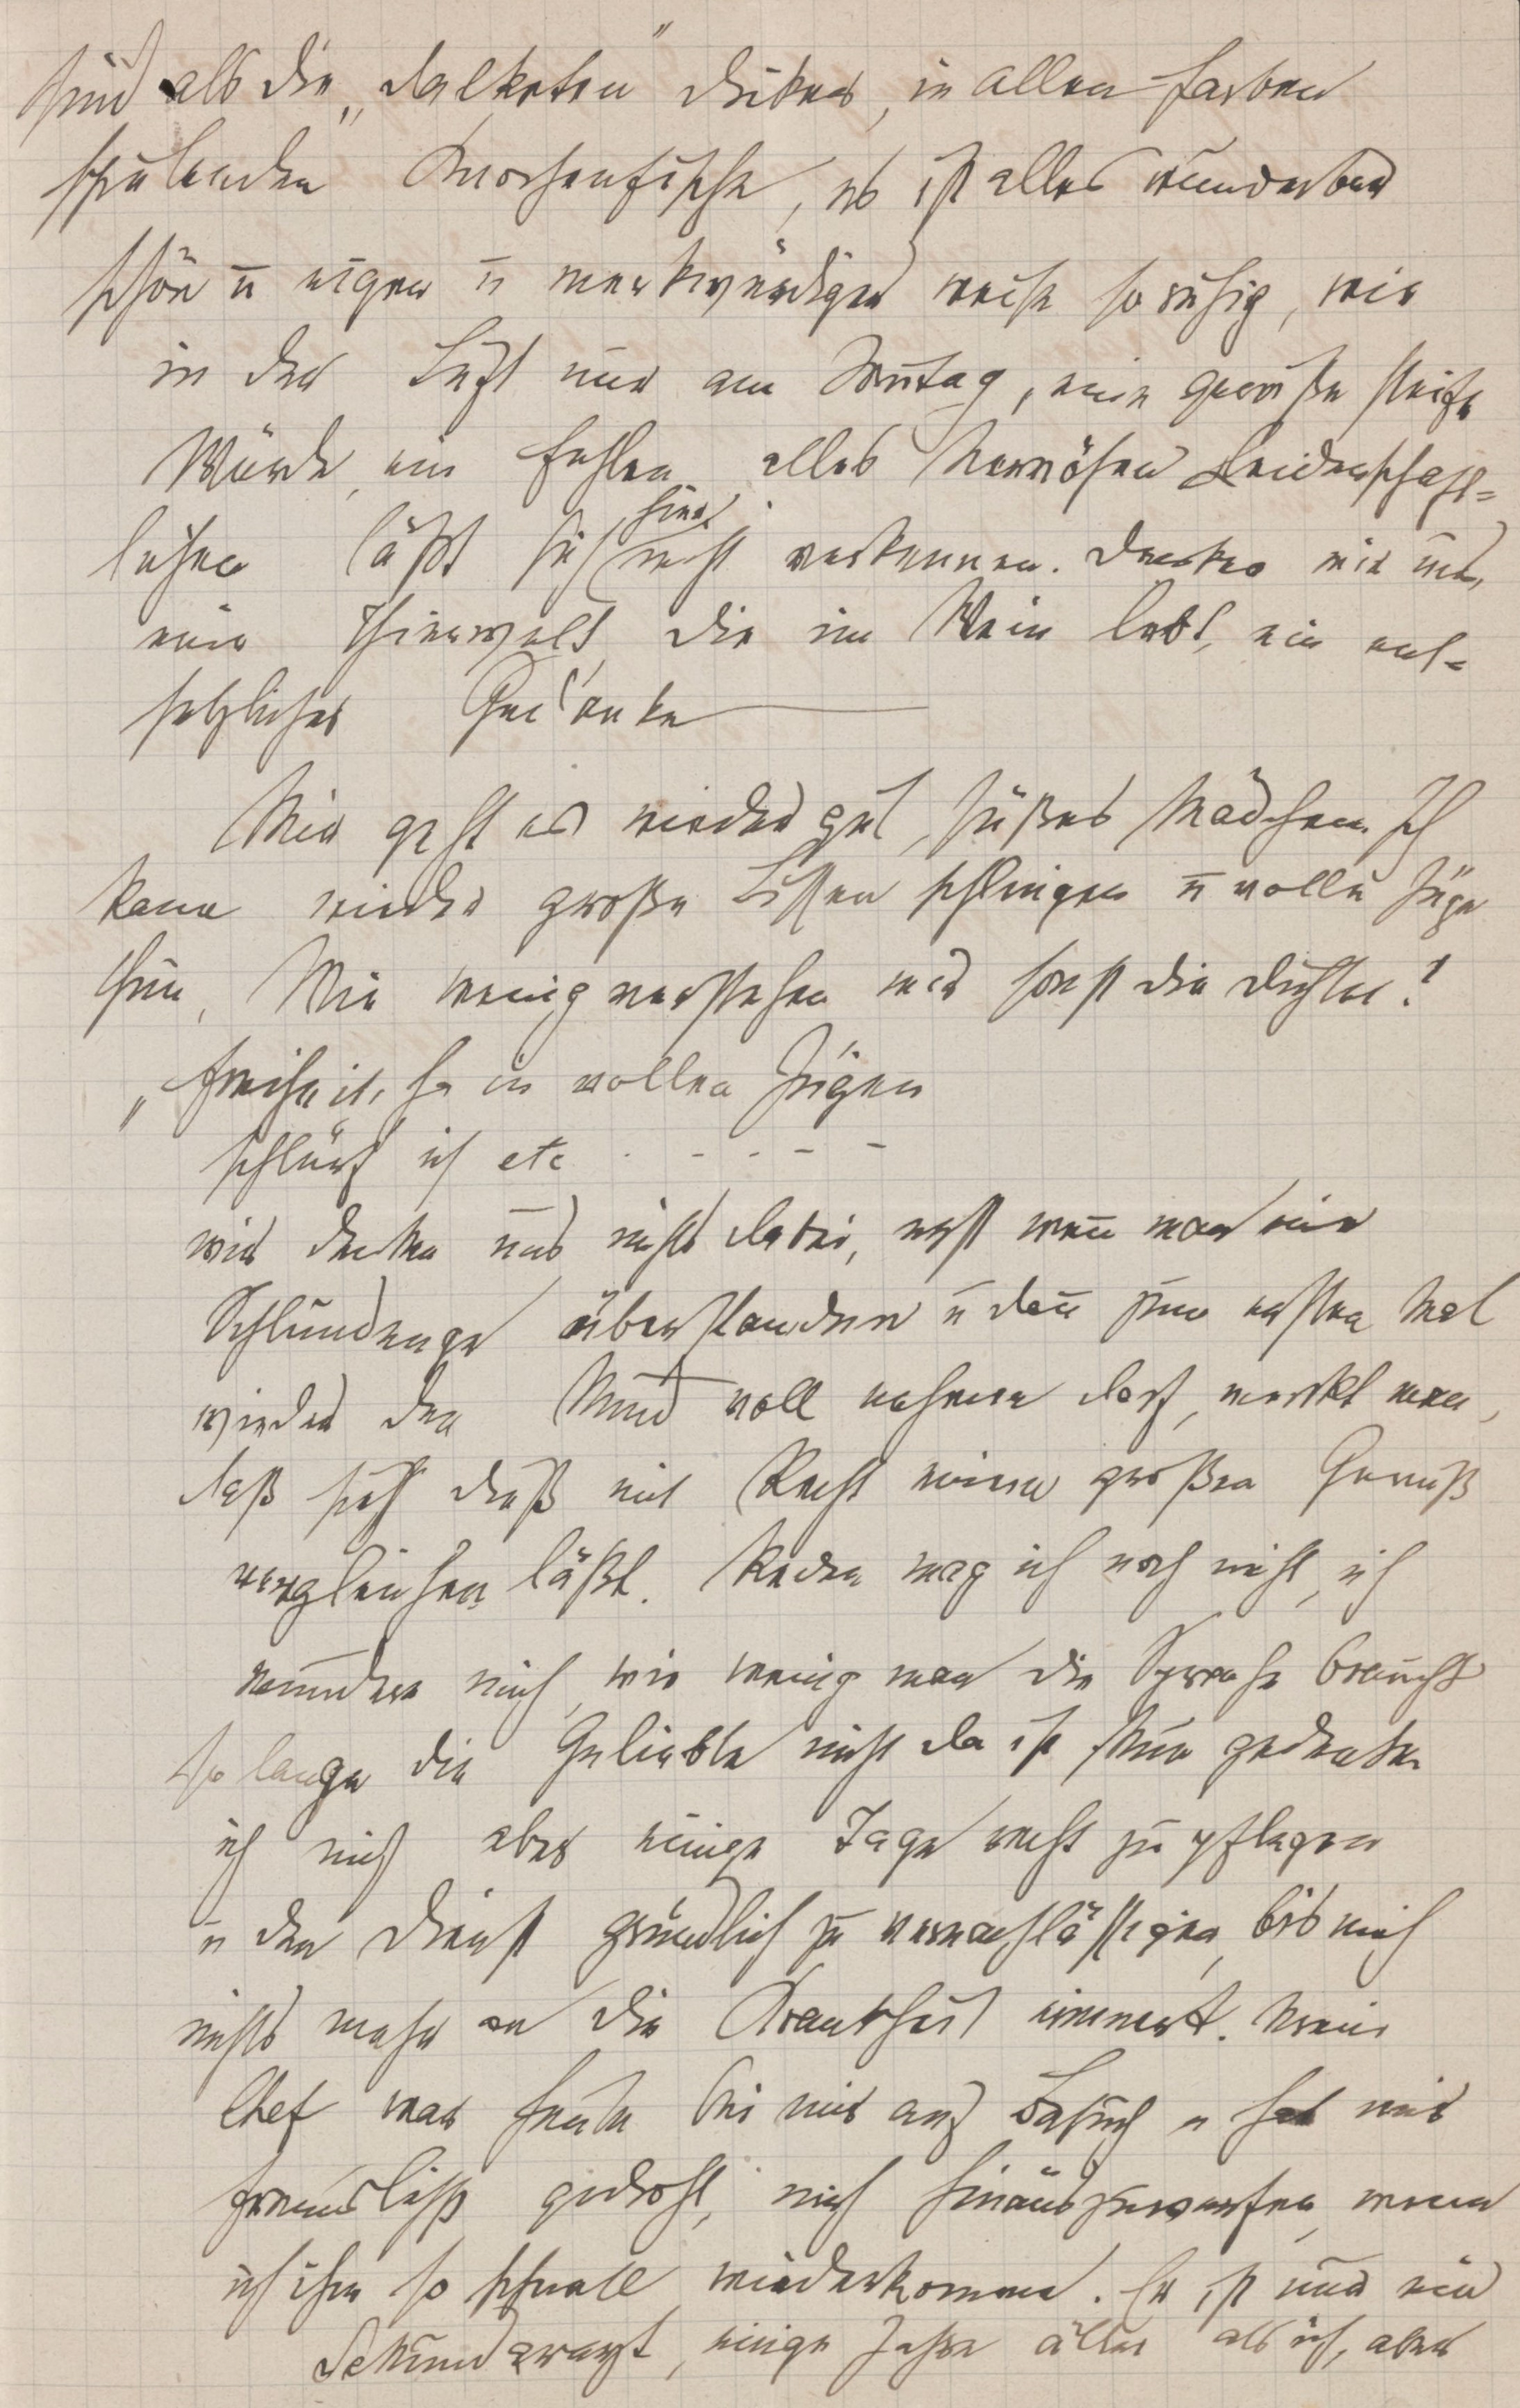 sind als die „dalketen“ dicken, in allen Farben
spielenden Knochenfische, es ist alles wunderbar
schön u eigen u merkwürdiger weise so ruhig, wie
in der Luft nur am Sontag, eine gewisse steife
Würde, ein Fehlen alles Nervösen Leidenschaft=
lichen läßt sich hier nicht verkennen. Denken wir uns,
eine Thierwelt die im Wein lebt, ein ent=
setzlicher Gedanke —
Mir geht es wieder gut, süßes Mädchen. Ich
kann wieder große Bissen schlingen u volle Züge
thun. Wie wenig verstehen wir sonst die Dichter!
„Freiheit, ha in vollen Zügen
schlürf ich etc . - - - -
wir denken uns nichts dabei, erst wenn man eine
Schlundenge überstanden u dann zum ersten Mal
wieder den Mund voll nehmen darf, merkt man,
daß sich dieß mit Recht einem großen Genuß
vergleichen läßt. Reden mag ich noch nicht, ich
wundere mich, wie wenig man die Sprache braucht
so lange die Geliebte nicht da ist. Nun gedenke
ich mich aber einige Tage recht zu pflegen
u den Dienst gründlich zu vernachlässigen, bis mich
nichts mehr an die Krankheit erinnert. Mein
Chef war heute bei mir auf Besuch u hat mir
freundlichst gedroht, mich hinauszuwerfen, wenn
ich ihm so schnell wiederkomme. Er ist nur ein
Sekundararzt, einige Jahre älter als ich, aber